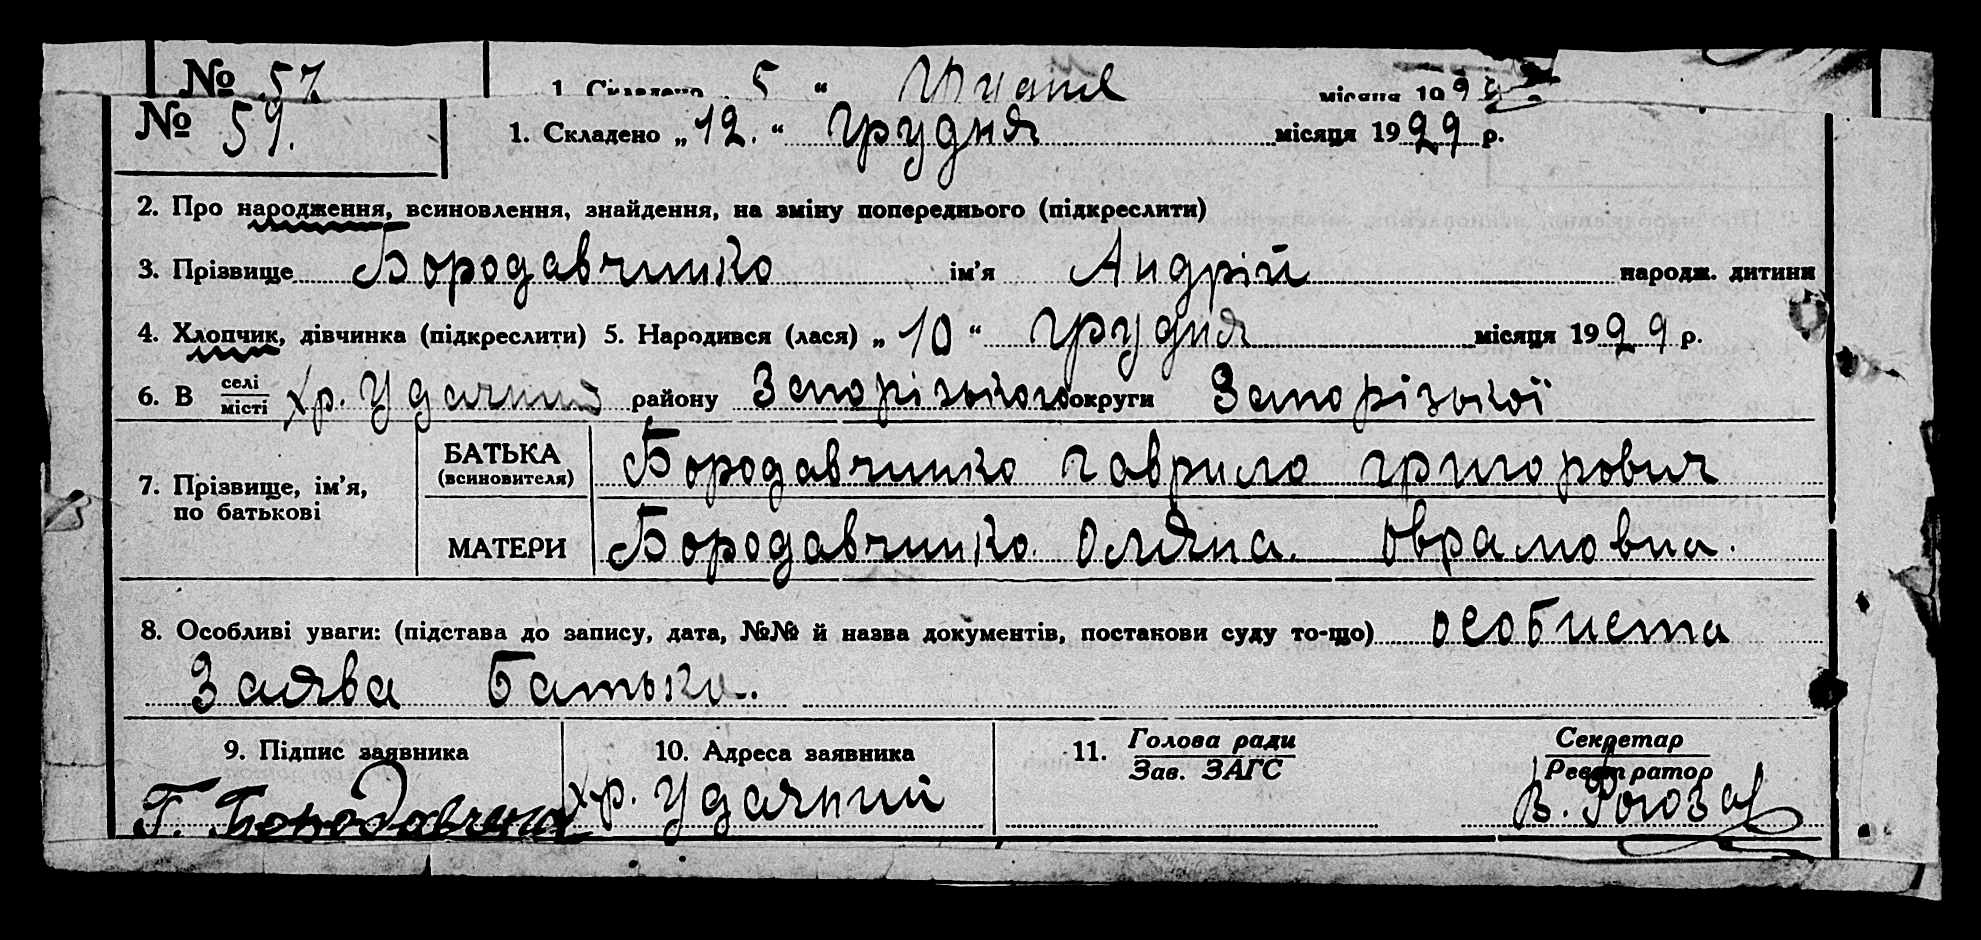 № 57
1. Складено 5 “ грудня місяця 1929
№ 59.
1. Складено „12.“ грудня місяця 1929 р.
2. Про народження, всиновлення, знайдення, на зміну попереднього (підкреслити)
3. Прізвище Бородавчинко ім’я Андрій народж. дитини
4. Хлопчик, дівчинка (підкреслити) 5. Народився (лася) „10“ грудня місяця 1929 р.
6. В селі місті хр. Удачний району Запорізького округи Запорізької
7. Прізвище, ім’я, по батькові
БАТЬКА (всиновителя) Бородавчинко Гаврило григорович
МАТЕРИ Бородавчинко Оляна. Оврамовна.
8. Особливі уваги: (підстава до запису, дата, №№ й назва документів, постанови суду то-що) особиста
Заява Батька.
9. Підпис заявника 10. Адреса заявника 11. Голова ради Зав. ЗАГС Секретар Реєстратор
Г. хр. Удачний В.